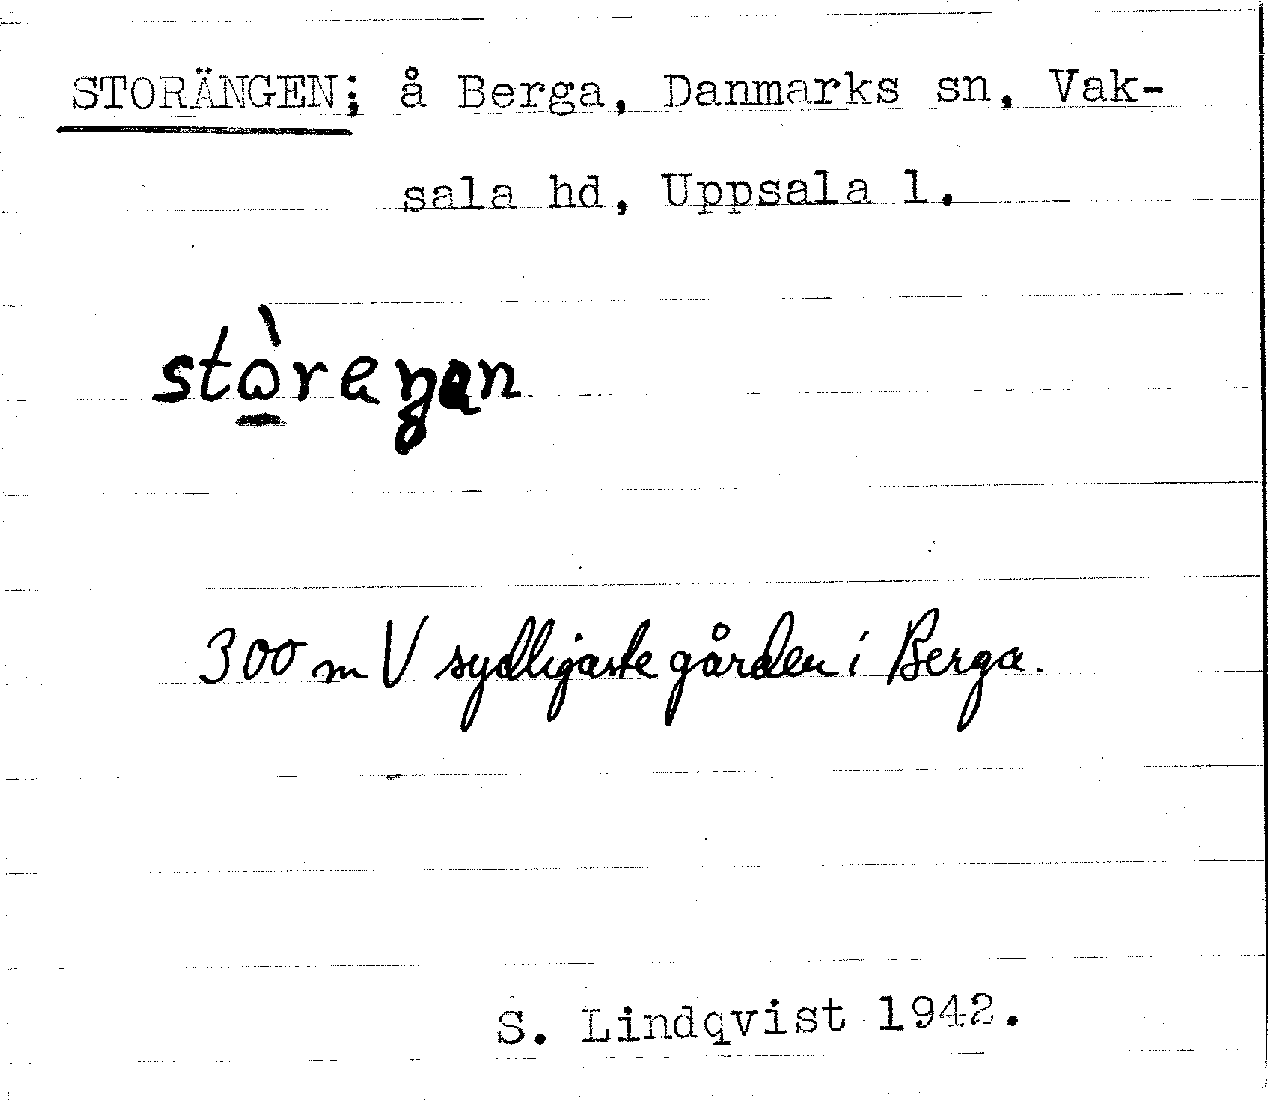 STORÄNGEN; å Berga, Danmarks sn, Vak-
sala hd, Uppsala l.
300 m V sydligaste gården i Berga.
S. Lindqvist 1942.